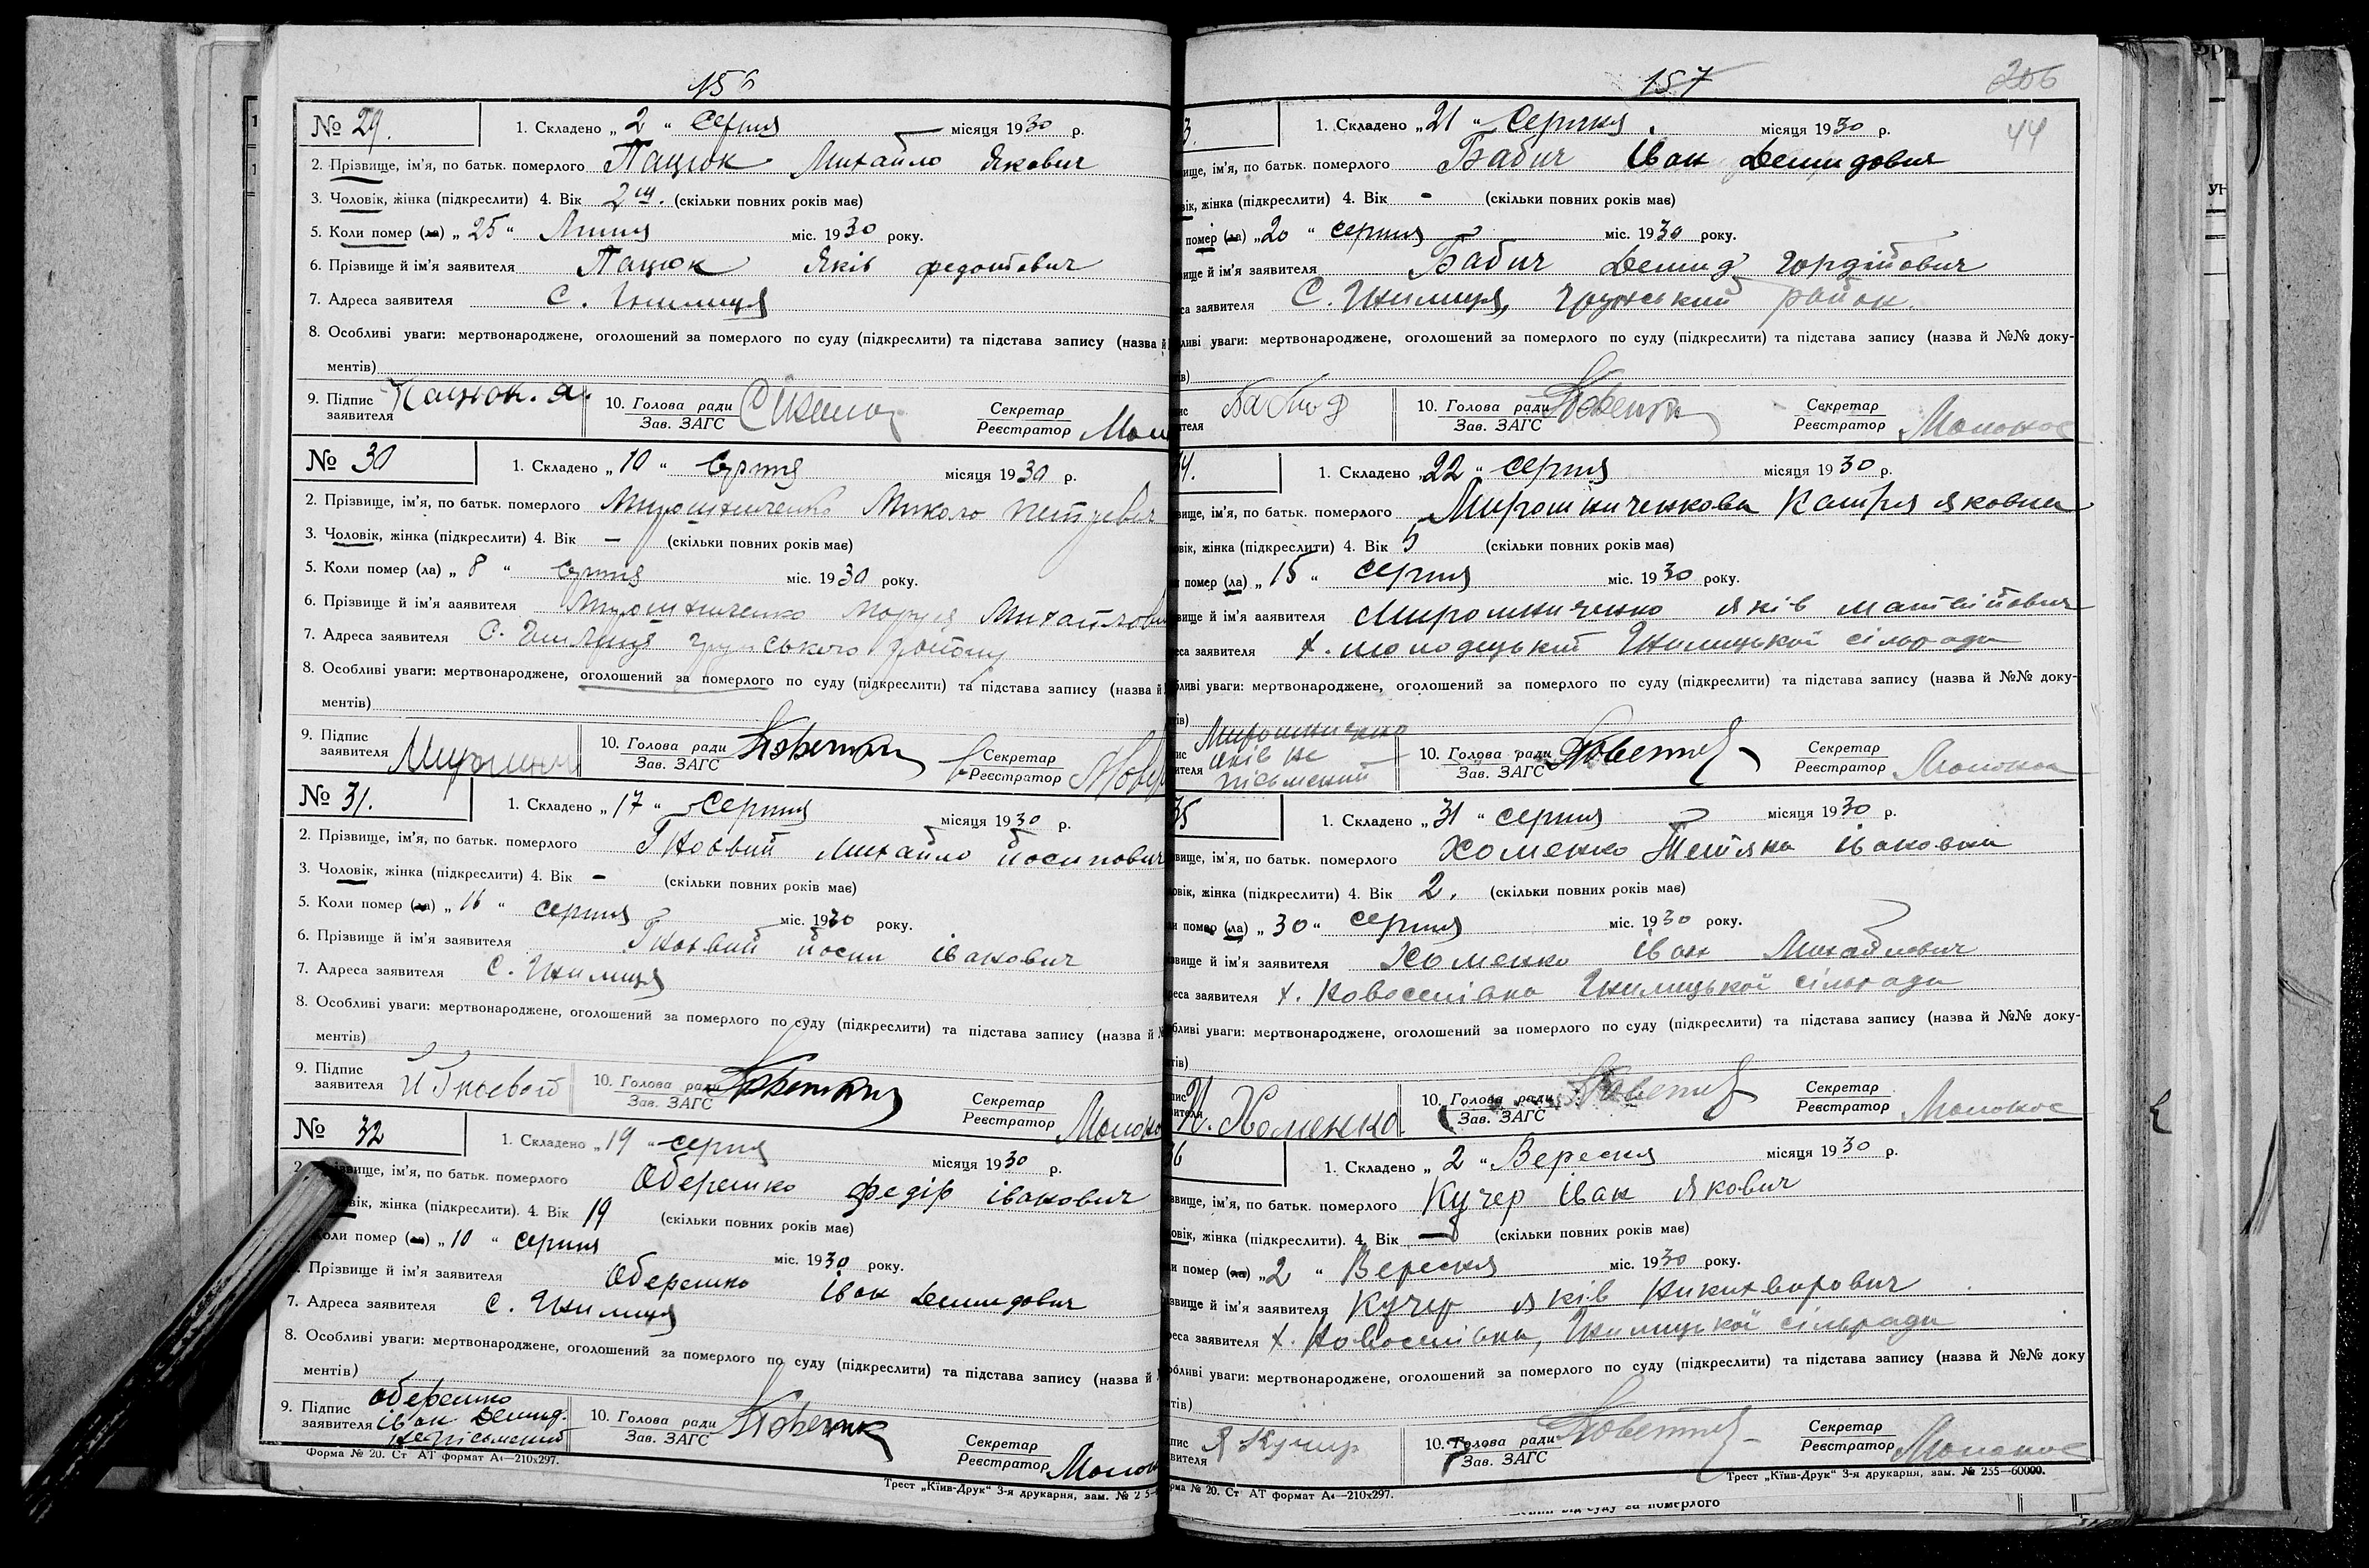 156
№ 29.
1. Складено „2“ Серпня місяця 1930 р.
2. Прізвище, ім'я, по батьк. померлого Пацюк Михайло Якович
3. Чоловік, жінка (підкреслити) 4. Вік 2 (скільки повних років має)
5. Коли помер (ла) „25“ Липня міс. 1930 року.
6. Прізвище й ім'я заявителя Пацюк Яків Федотович
7. Адреса заявителя С. Гнилиця
8. Особливі уваги: мертвонароджене, оголошений за померлого по суду (підкреслити) та підстава запису (назва й
ментів)
9. Підпис заявителя Пацюк. Я. 10. Голова ради Зав. ЗАГС Секретар Реєстратор
№ 30
1. Складено „10“ Серпня місяця 1930 р.
2. Прізвище, ім'я, по батьк. померлого Мирошниченко Микола Петрович
3. Чоловік, жінка (підкреслити) 4. Вік — (скільки повних років має)
5. Коли помер (ла) „8“ Серпня міс. 1930 року.
6. Прізвище й ім'я заявителя Мирошниченко Маруся
7. Адреса заявителя С. Гнилиця Грунського району
8. Особливі уваги: мертвонароджене, оголошений за померлого по суду (підкреслити) та підстава запису (назва й
ментів)
9. Підпис заявителя 10. Голова ради Зав. ЗАГС Секретар Реєстратор
№ 31.
1. Складено „17“ Серпня місяця 1930 р.
2. Прізвище, ім'я, по батьк. померлого Гноєвий Михайло Йосипович
3. Чоловік, жінка (підкреслити) 4. Вік - (скільки повних років має)
5. Коли помер (ла) „16“ серпня міс. 1930 року.
6. Прізвище й ім'я заявителя Гноєвий Йосип Іванович
7. Адреса заявителя С. Гнилиця
8. Особливі уваги: мертвонароджене, оголошений за померлого по суду (підкреслити) та підстава запису (назва й
ментів)
9. Підпис заявителя Й Гноевой 10. Голова ради Зав. ЗАГС Секретар Реєстратор
№ 32
1. Складено „19“ серпня місяця 1930 р.
ім'я, по батьк. померлого Оберемко Федір Іванович
жінка (підкреслити). 4. Вік 19 (скільки повних років має)
помер (ла) „10“ серпня міс. 1930 року.
Прізвище й ім'я заявителя Оберемко Іван Демидович
7. Адреса заявителя С. Гнилиця
8. Особливі уваги: мертвонароджене, оголошений за померлого по суду (підкреслити) та підстава запису (назва й
ментів)
9. Підпис заявителя Оберемко Іван Демид. неписьмений 10. Голова ради Зав. ЗАГС Секретар Реєстратор
Форма № 20. Ст АТ формат А4—210x297.
Трест „Київ-Друк“ 3-я друкарня, зам. №
157
206
44
3.
1. Складено „21“ Серпня. місяця 1930 р.
ім'я, по батьк. померлого Бабич Іван Демидович
жінка (підкреслити) 4. Вік - (скільки повних років має)
помер (ла) „20“ серпня міс. 1930 року.
й ім'я заявителя Бабич Демид Гордійович
заявителя С. Гнилиця, Грунський район.
уваги: мертвонароджене, оголошений за померлого по суду (підкреслити) та підстава запису (назва й №№ доку-
10. Голова ради Зав. ЗАГС Секретар Реєстратор Молокос
4.
1. Складено „22“ серпня місяця 1930 р.
ім'я, по батьк. померлого Мирошниченкова Катря Яковна
жінка (підкреслити) 4. Вік 5 (скільки повних років має)
помер (ла) „15“ серпня міс. 1930 року.
й ім'я заявителя Мирошниченко Яків Матвійович
заявителя х. Молодецький Гнилицької сільради
уваги: мертвонароджене, оголошений за померлого по суду (підкреслити) та підстава запису (назва й №№ доку-
Мирошниченко Яків не письмений 10. Голова ради Зав. ЗАГС Секретар Реєстратор Молокос
35
1. Складено „31“ серпня місяця 1930 р.
ім'я, по батьк. померлого Хоменко Тетяна Івановна
жінка (підкреслити) 4. Вік 2. (скільки повних років має)
помер (ла) „30“ серпня міс. 1930 року.
й ім'я заявителя Хоменко Іван Михайлович
заявителя х. Новоселівка Гнилицької сільради
уваги: мертвонароджене, оголошений за померлого по суду (підкреслити) та підстава запису (назва й №№ доку-
И. Хоменко 10. Голова ради Зав. ЗАГС Секретар Реєстратор Молокос
36
1. Складено „2“ Вересня місяця 1930 р.
ім'я, по батьк. померлого Кучер Іван Якович
жінка (підкреслити). 4. Вік — (скільки повних років має)
помер (ла) „2“ Вересня міс. 1930 року.
й ім'я заявителя Кучер Яків
заявителя х. Новоселівка, Гнилицької сільради
уваги: мертвонароджене, оголошений за померлого по суду (підкреслити) та підстава запису (назва й №№ доку
Я Кучир 10. Голова ради Зав. ЗАГС Секретар Реєстратор Молокос
№ 20. Ст АТ формат А4—210x297.
Трест „Київ-Друк“ 3-я друкарня, зам. № 255—60000.